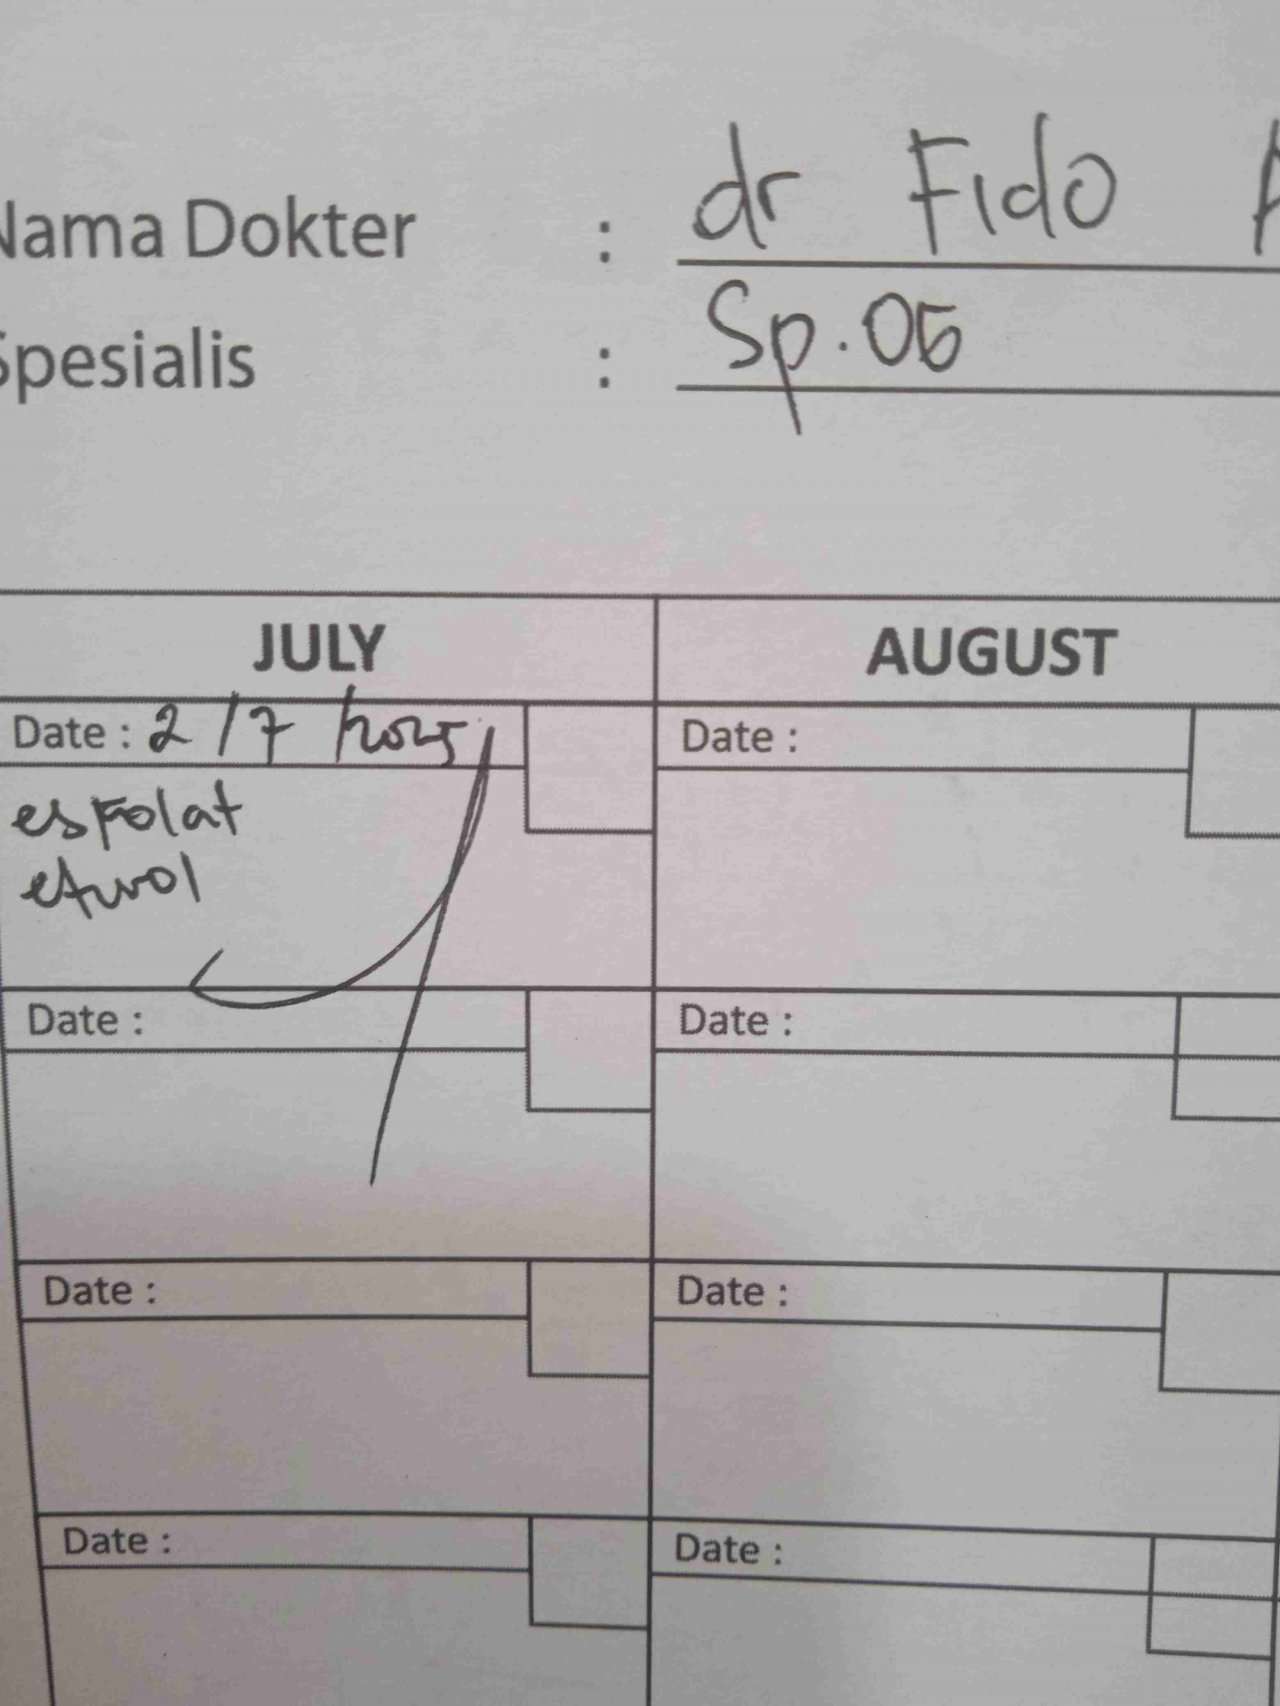 Nama Dokter : dr Fido A
Spesialis : Sp.OG
JULY AUGUST
Date : 2/7/2025 Date :
esfolat
etwol
Date : Date :
Date : Date :
Date : Date :